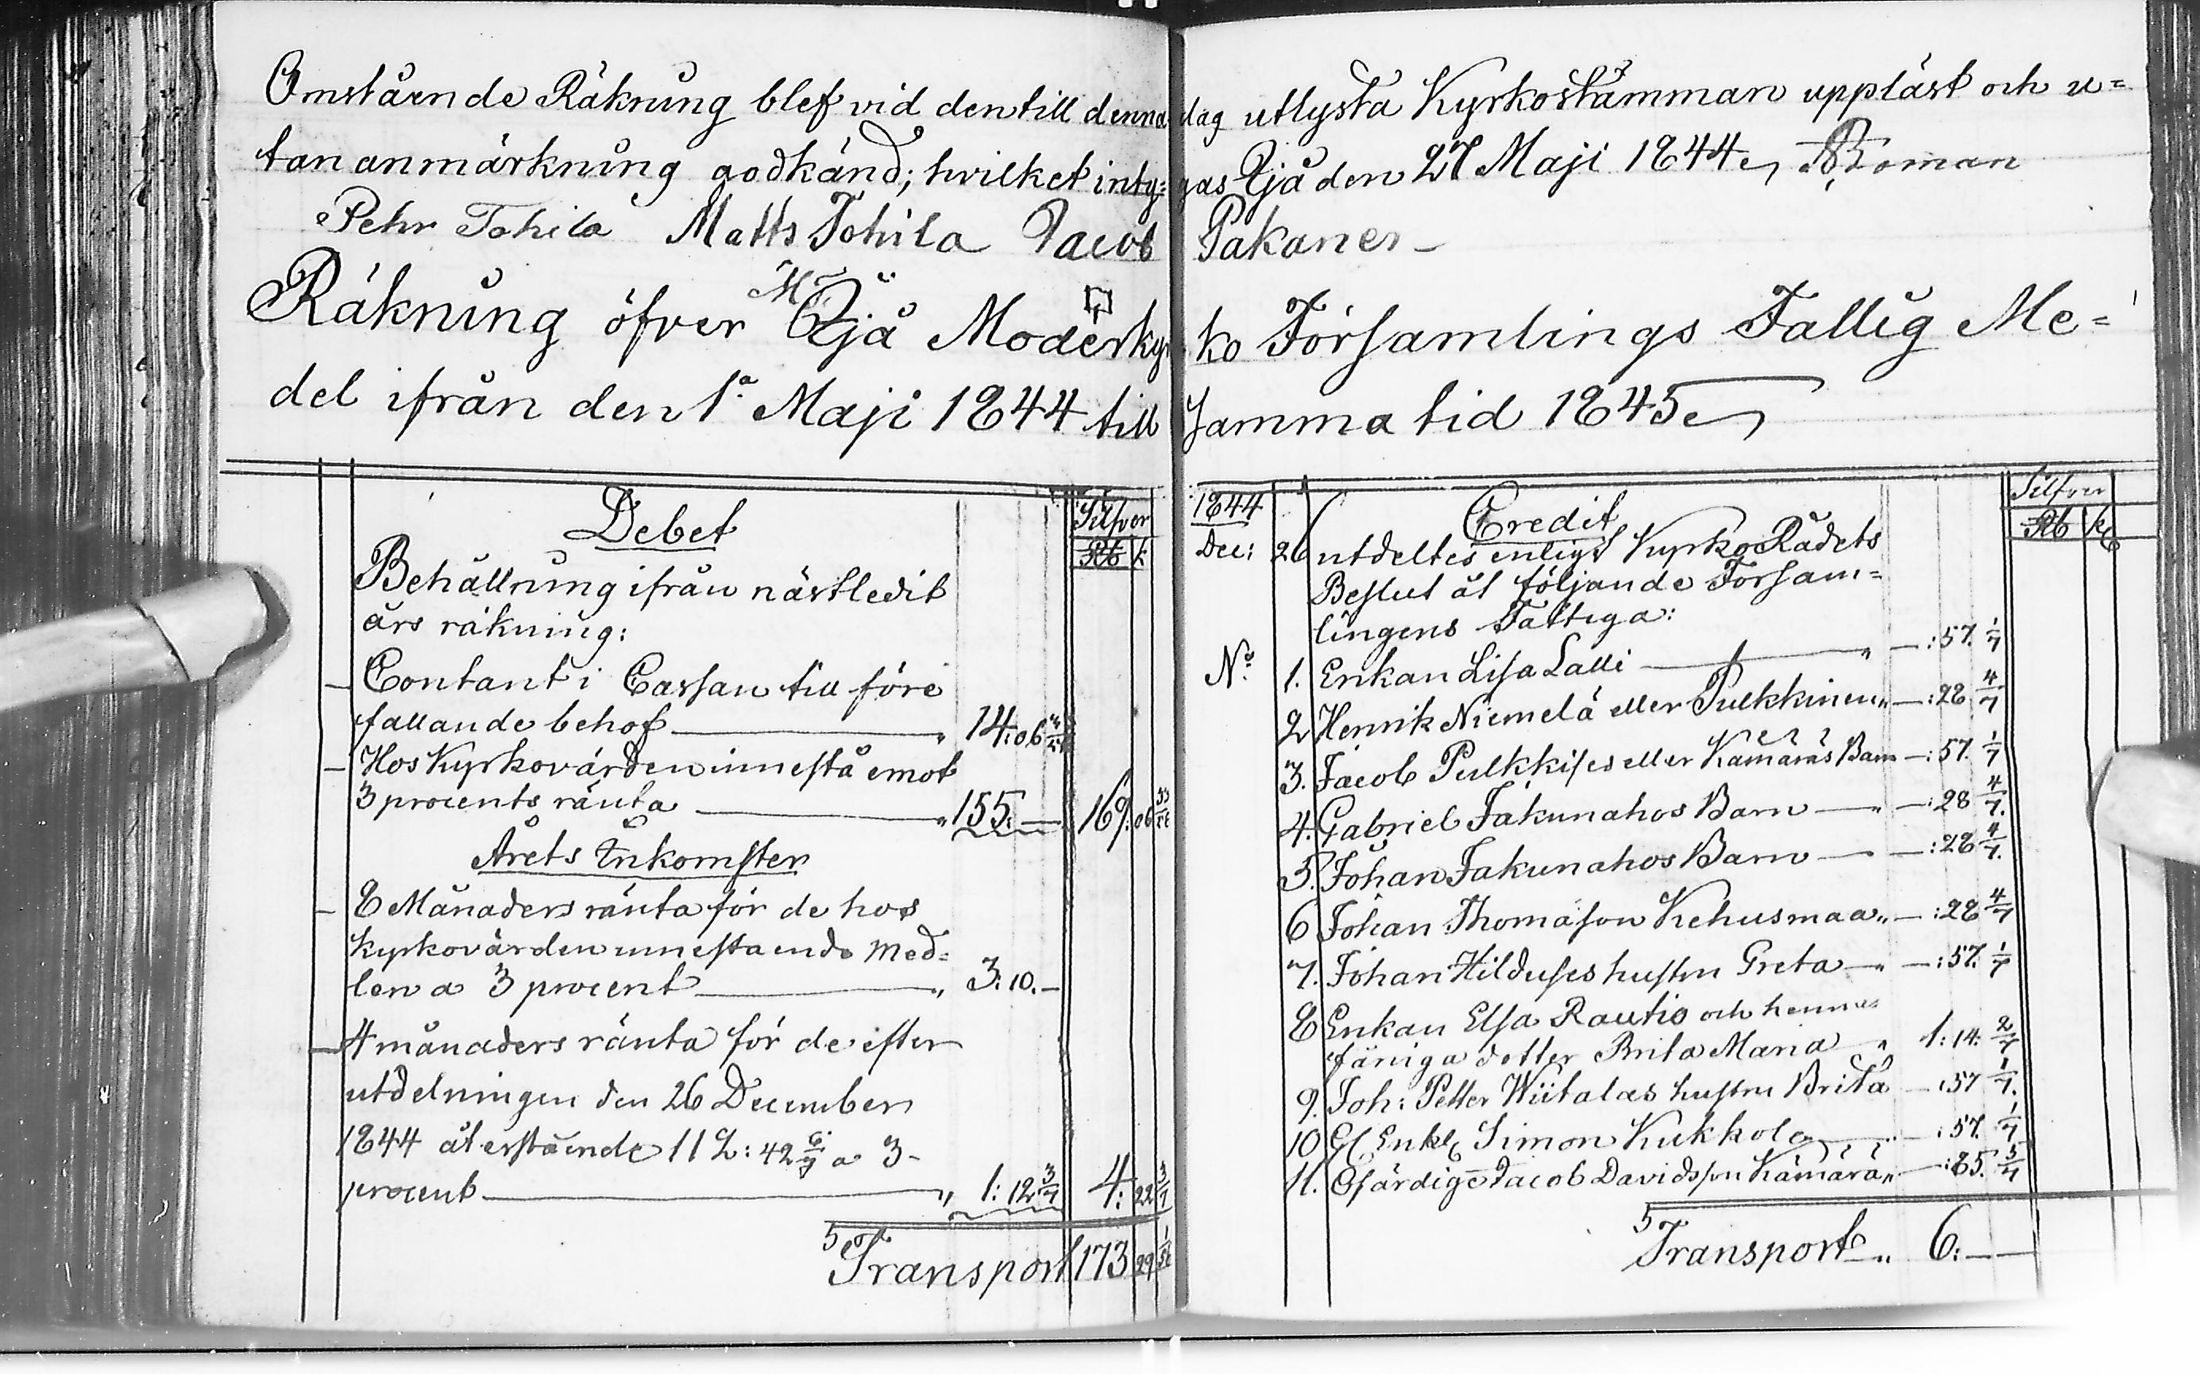 Omstående Räkning blef vid den till denna dag utlysta Kyrkostämman uppläst och u=
tan anmärkning godkänd; hvilket inty= gas Ijå den 27 Maji 1844,
Pehr Tohila Matts Tohila Jacob Pakaner
Räkning öfver Ijå Moderkyr ko Församlings Fattig Me=
del ifrån den 1a Maji 1844 till samma tid 1845
Debet
Silfver
Rb k
Behållning ifrån nästledit
års räkning:
Contant i Cassan till före
fallande behof 14:06
Hos Kyrkovärden innestå emot
3 procents ränta 155:— 169:06
Årets Inkomster
8 Månaders ränta för de hos
kyrkovärden innestaende Med=
len a 3 procent 3:10.—
4 månaders ränta för de efter
utdelningen den 26 December
1844 återstående 112:42 6/7 a 3
procent 1:12 3/7 4:22 3/7
Transport 173 29
Credit
Silfver
Rb k
1844
Dec: 26 utdeltes enligt KyrkoRådets
Beslut åt följande Försam=
lingens Fattiga:
No 1. Enkan Lisa Lalli —:57. 1/7
2 Henrik Niemelä eller Pulkkinen —:28 4/7
3. Jacob Pulkkises eller Kämäräs Barn —:57. 1/7
4. Gabriel Jakunahos Barn —:28 4/7.
5. Johan Jakunahos Barn —:28 4/7.
6 Johan Thomasson Kehusmaa —:28 4/7
7. Johan Hilduses hustru Greta —:57. 1/7
8 Enkan Elsa Rautio och hennes
fåniga dotter Brita Maria 1:14: 2/7
9. Joh: Petter Wiitalas hustru Brita —:57 1/7.
10 Enkl Simon Kukkola —:57. 1/7
11. Ofärdige Jacob Davidsson Kämärä —:85. 5/7
Transport 6:—